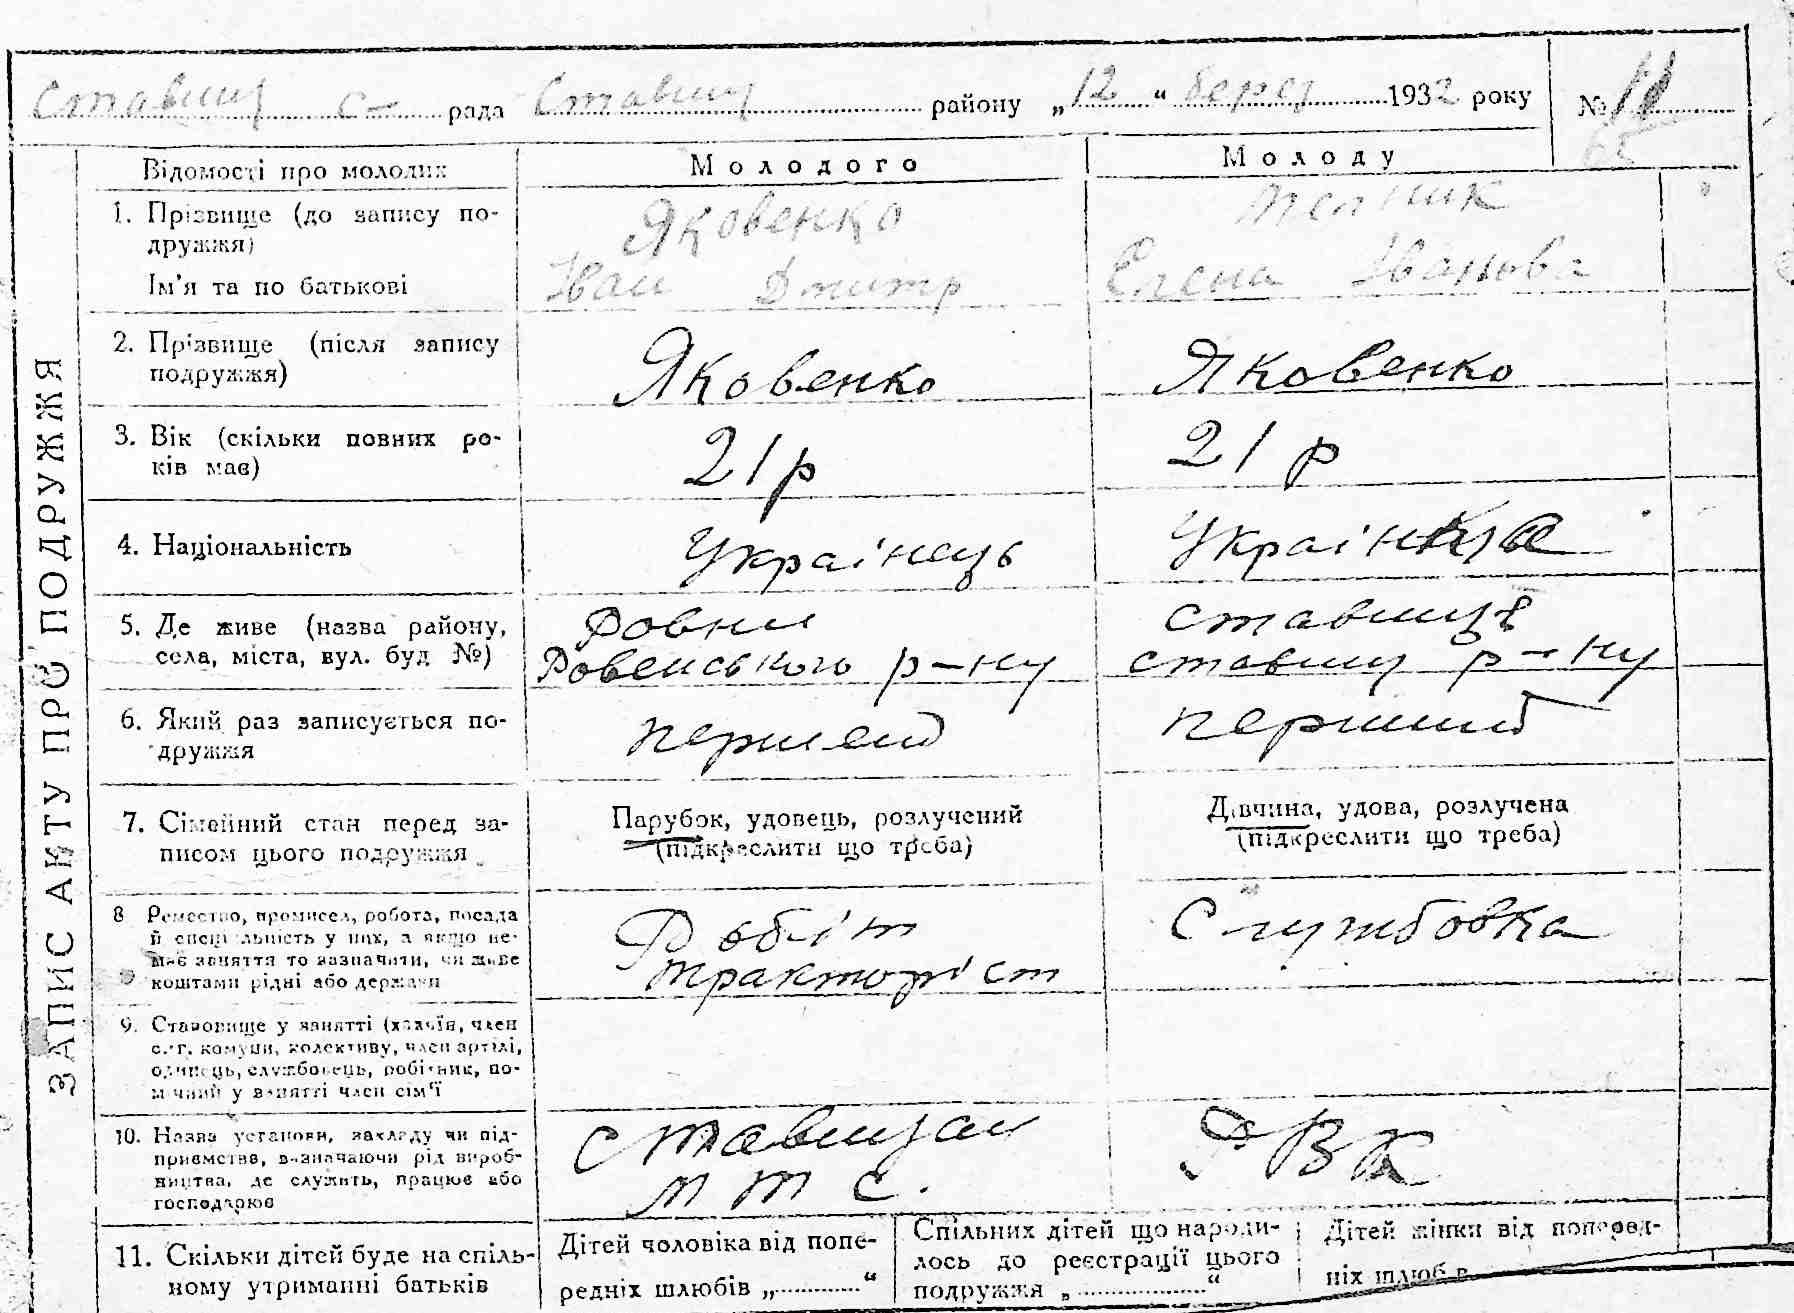 ставищ с– рада Ставищ району „12“ берез 1932 року
№ 11
65
ЗАПИС АКТУ ПРО ПОДРУЖЖЯ
Відомості про молодих
Молодого
Молоду
1. Прізвище (до запису по-
дружжя)
Ім'я та по батькові
Яковенко
Іван Дмитр
Елена Іванова
2. Прізвище (після запису
подружжя)
Яковенко
Яковенко
3. Вік (скільки повних ро-
ків має)
21 р
21 р
4. Національність
Українець
Українка
5. Де живе (назва району,
села, міста, вул. буд №)
Ровни
Ровенського р–ну
ставище
ставищ р–ну
6. Який раз записується по-
дружжя
перший
перший
7. Сімейний стан перед за-
писом цього подружжя
Парубок, удовець, розлучений
(підкреслити що треба)
Дівчина, удова, розлучена
(підкреслити що треба)
8 Ремество, промисел, робота, посада
й спеціальність у них, а якщо не-
має заняття то зазначити, чи живе
коштами рідні або держави
Робіт
тракторіст
Службовка
9. Становище у занятті (хазяїн, член
с.-г. комуни, колективу, член артілі,
одинець, службовець, робітник, по-
мічний у занятті член сім'ї
10. Назва установи, закладу чи під-
приємства, визначаючи рід вироб-
ництва, де служить, працює або
господарює
Ставищан
м т с.
РВК
11. Скільки дітей буде на спіль-
ному утриманні батьків
Дітей чоловіка від попе-
редніх шлюбів „ “
Спільних дітей що народи-
лось до реєстрації цього
подружжя „ “
Дітей жінки від поперед-
ніх шлюб